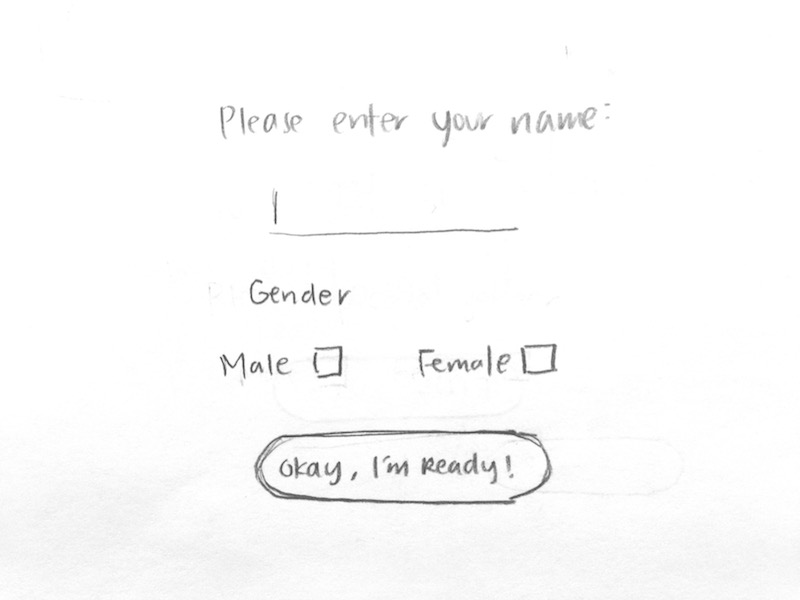 Please enter your name:
Gender
Male Female
Okay, I'm Ready!